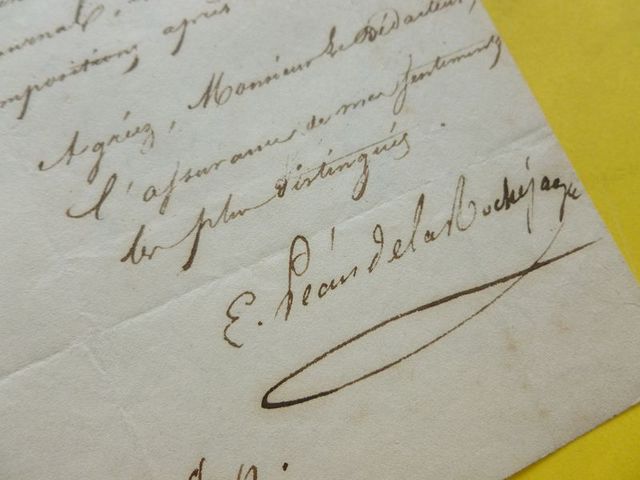 ournal,
mpositions, après
Agréez, Monsieur le Rédacteur,
l'assurance de mes sentiments
les plus distingués.
E. Péan de la Rochejagu